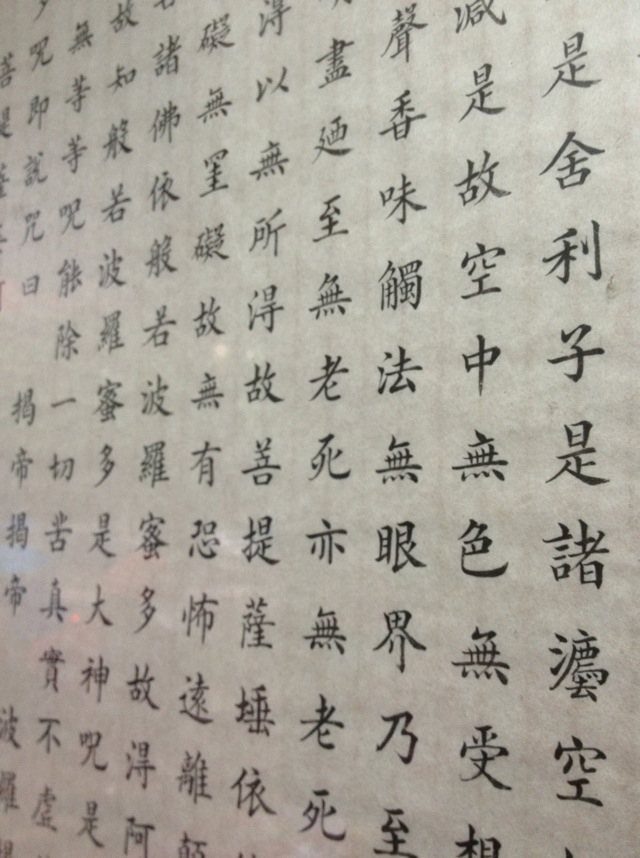 是舍利子是諸灋空
減是故空中無色無受想
聲香味觸法無眼界乃至
盡廼至無老死亦無老死
得以無所得故菩提薩埵依
礙無罣礙故無有恐怖遠離顛
諸佛依般若波羅蜜多故得阿
故知般若波羅蜜多是大神呪是
無等等呪能除一切苦真實不虛
呪即說咒曰 揭帝揭帝 波羅
菩提薩